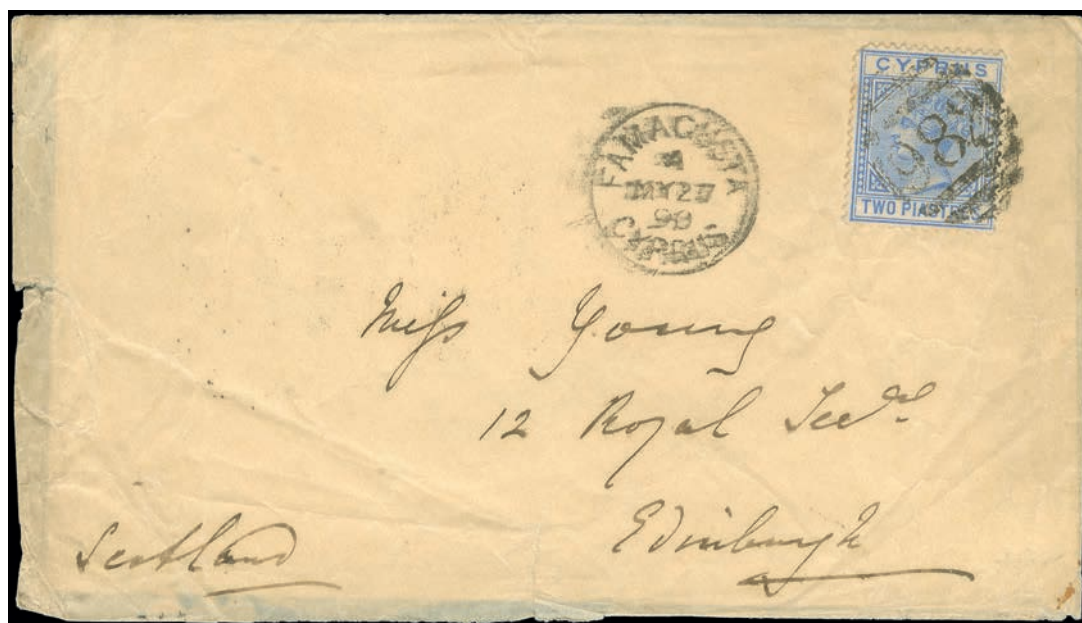 CYPRUS
982
TWO PIASTRES
FAMAGUSTA
MY 27
90
CYPRUS
Miss Young
12 Royal Terr.
Edinburgh
Scotland